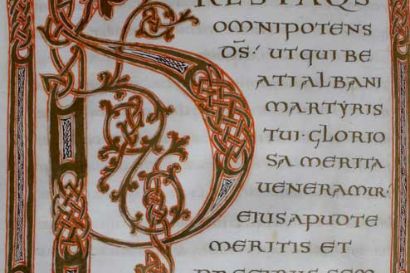 RESTAQS
OMNIPOTENS
DS: UTQUIBE
ATIALBANI
MARTYRIS
TUI GLORIO
SA MERITA
UENERAMUR
EIUSAPUDTE
MERITIS ET
PRECIBUS SEM